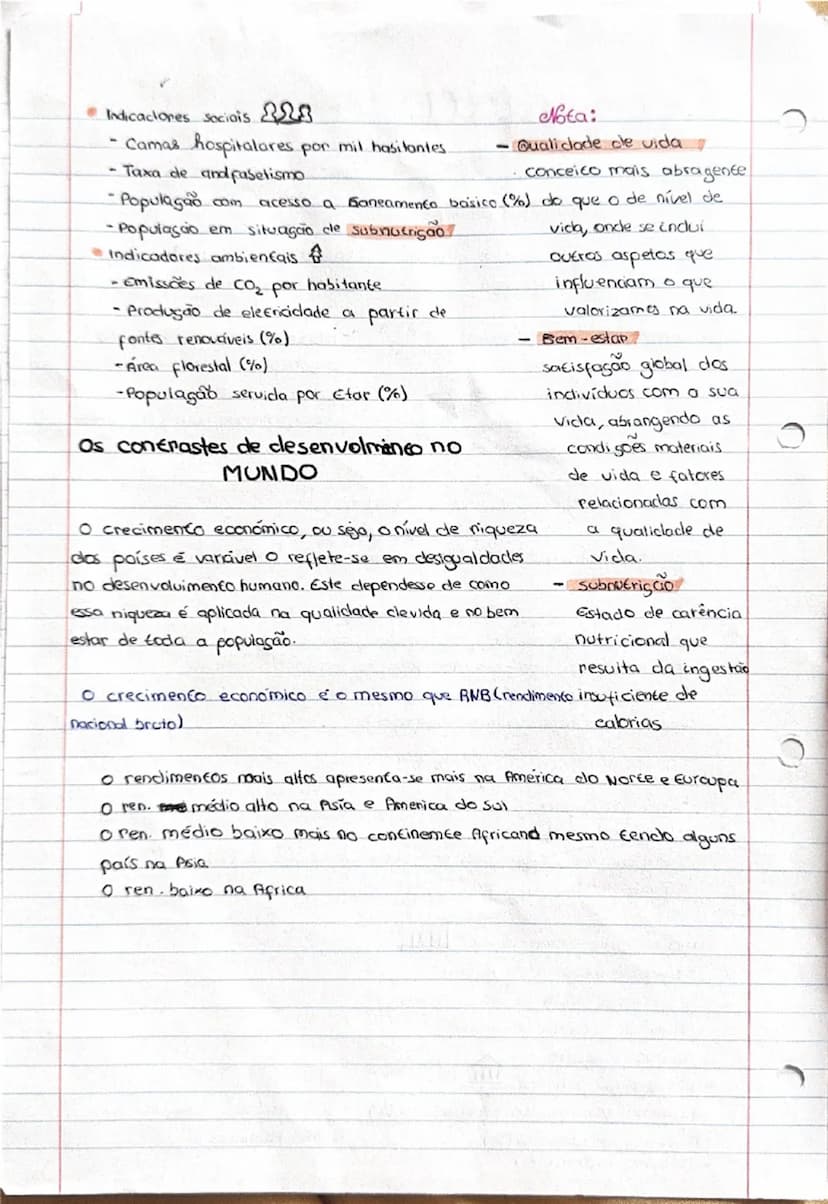 Indicadores sociais
- Camas hospitalares por mil habitantes
- Taxa de andfabetismo
- População com acesso a Saneamento básico (%)
- População em situação de subnutrição
Indicadores ambientais
- Emissões de CO₂ por habitante
- Produção de eletricidade a partir de
fontes renováveis (%)
- Área florestal (%)
- População servida por Etar (%)
Nota:
- Qualidade de vida
conceico mais abragente
do que o de nível de
vida, onde se inclui
outros aspetos que
influenciam o que
valorizamos na vida.
- Bem-estar
satisfação global dos
indivíduos com a sua
vida, abrangendo as
condições materiais
de vida e fatores
relacionadas com
a qualidade de
vida.
- subnutrição
Estado de carência
nutricional que
resulta da ingestão
insuficiente de
calorias
Os contrastes de desenvolmineo no
MUNDO
O crecimento económico, ou seja, o nível de riqueza
dos países é varável o reflete-se em desigualdades
no desenvolvimento humano. Este dependesse de como
essa riqueza é aplicada na qualidade devida e no bem
estar de toda a população.
O crecimento económico é o mesmo que RNB (rendimento
nacional bruto)
O rendimentos mais altos apresenta-se mais na América do Norte e Euroupa
O ren. médio alto na Ásia e America do Sul
O ren. médio baixo mais no continente Africand mesmo tendo alguns
país na Asia
O ren. baixo na Africa